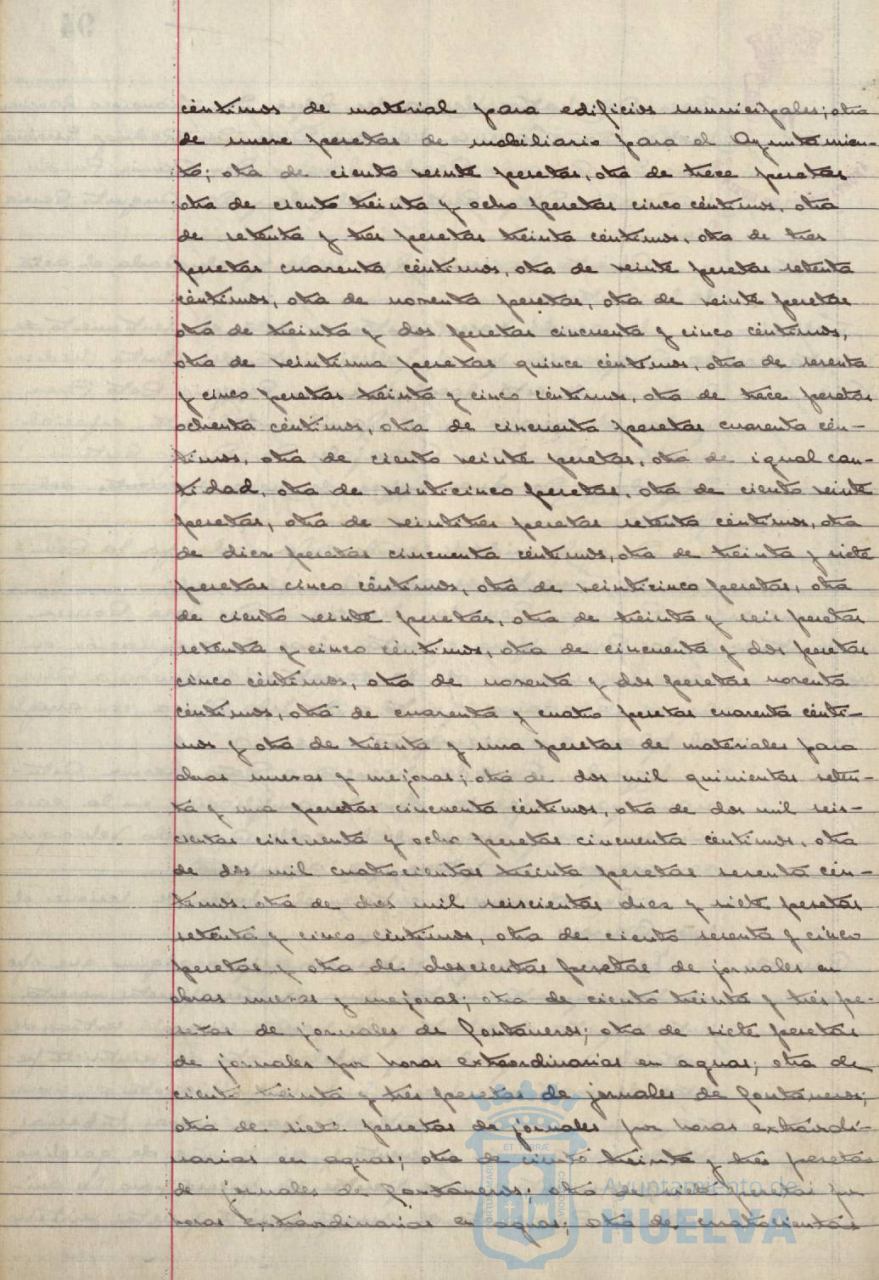 céntimos de material para edificios municipales; otra
de nueve pesetas de mobiliario para el Ayuntamien-
to; otra de ciento veinte pesetas, otra de trece pesetas
otra de ciento treinta y ocho pesetas cinco céntimos, otra
de setenta y tres pesetas treinta céntimos, otra de tres
pesetas cuarenta céntimos, otra de veinte pesetas setenta
céntimos, otra de noventa pesetas, otra de veinte pesetas
otra de treinta y dos pesetas cincuenta y cinco céntimos,
otra de veintiuna pesetas quince céntimos, otra de sesenta
y cinco pesetas treinta y cinco céntimos, otra de trece pesetas
ochenta céntimos, otra de cincuenta pesetas cuarenta cén-
timos, otra de ciento veinte pesetas, otra de igual can-
tidad, otra de veinticinco pesetas, otra de ciento veinte
pesetas, otra de veintitrés pesetas setenta céntimos, otra
de diez pesetas cincuenta céntimos, otra de treinta y siete
pesetas cinco céntimos, otra de veinticinco pesetas, otra
de ciento veinte pesetas, otra de treinta y seis pesetas
setenta y cinco céntimos, otra de cincuenta y dos pesetas
cinco céntimos, otra de noventa y dos pesetas noventa
céntimos, otra de cuarenta y cuatro pesetas cuarenta cénti-
mos y otra de treinta y una pesetas de materiales para
obras nuevas y mejoras; otra de dos mil quinientas seten-
ta y una pesetas cincuenta céntimos, otra de dos mil seis-
cientas cincuenta y ocho pesetas cincuenta céntimos, otra
de dos mil cuatrocientas treinta pesetas sesenta cén-
timos, otra de dos mil seiscientas diez y siete pesetas
setenta y cinco céntimos, otra de ciento sesenta y cinco
pesetas y otra de doscientas pesetas de jornales en
obras nuevas y mejoras; otra de ciento treinta y tres pe-
setas de jornales de fontaneros; otra de siete pesetas
de jornales por horas extraordinarias en aguas; otra de
ciento treinta y tres pesetas de jornales de fontaneros;
otra de siete pesetas de jornales por horas extraordi-
narias en aguas; otra de ciento treinta y tres pesetas
de jornales de fontaneros; otra de siete pesetas por
horas extraordinarias en aguas; otra de cuatrocientas
Ayuntamiento de
HUELVA